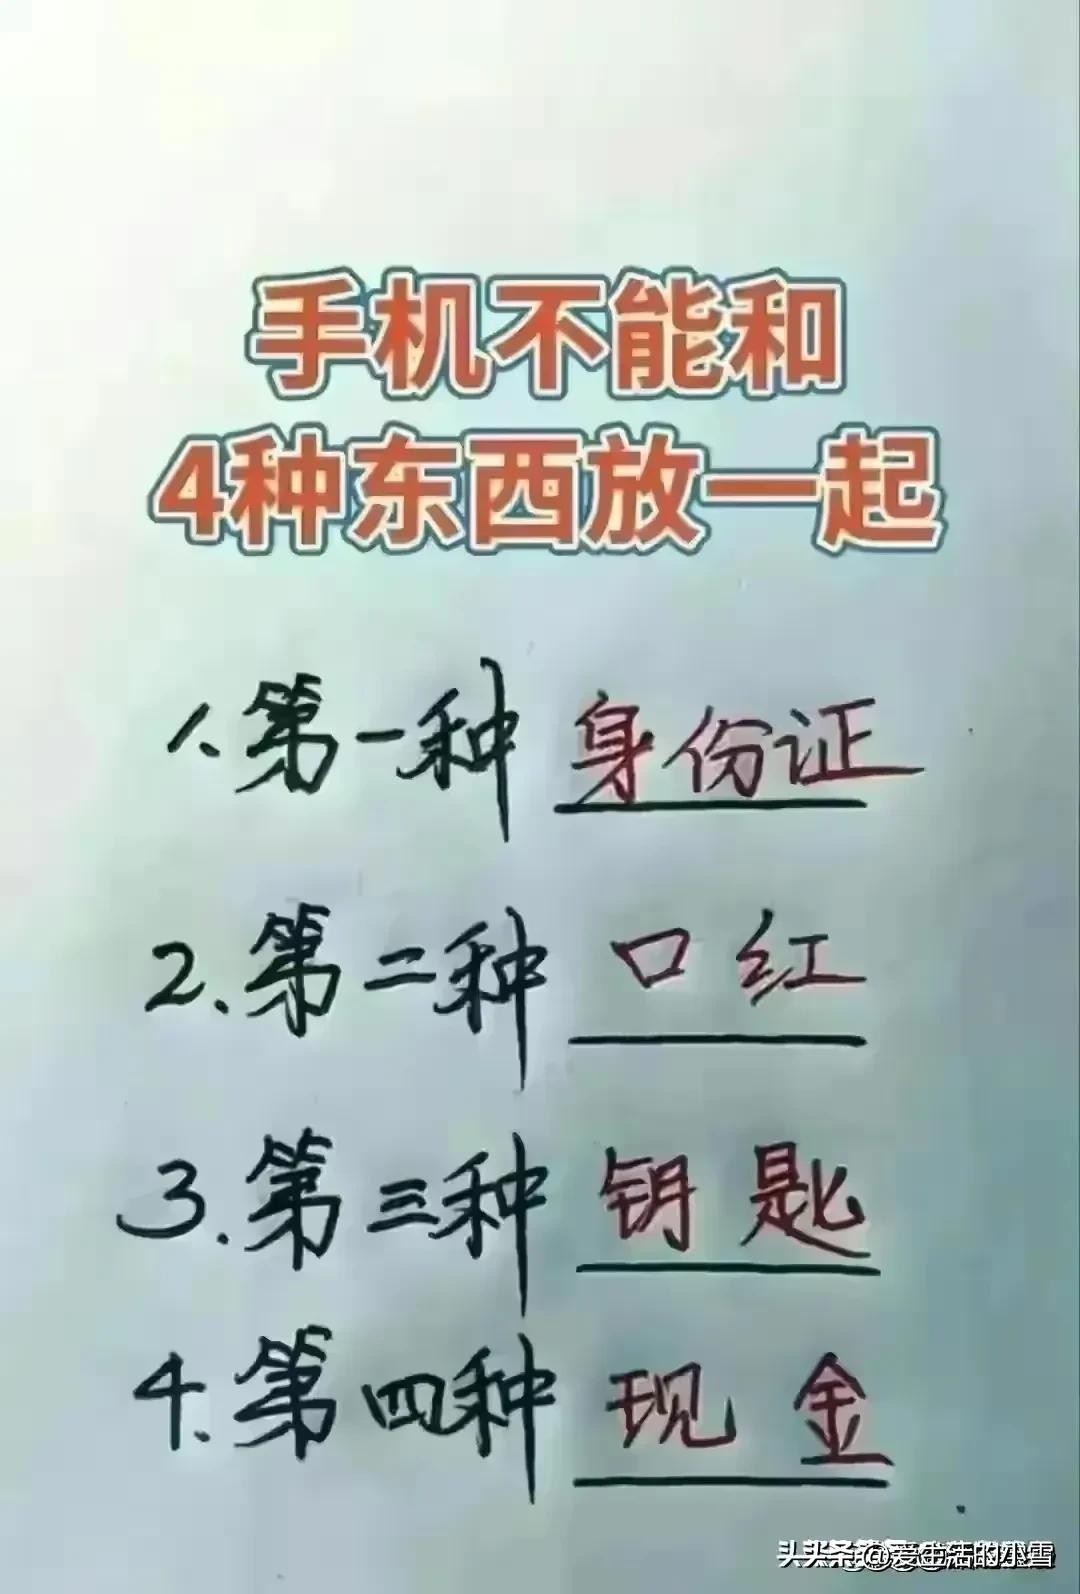 手机不能和
4种东西放一起
1.第一种 身份证
2.第二种 口红
3.第三种 钥匙
4.第四种 现金
头条 @爱生活的小雪